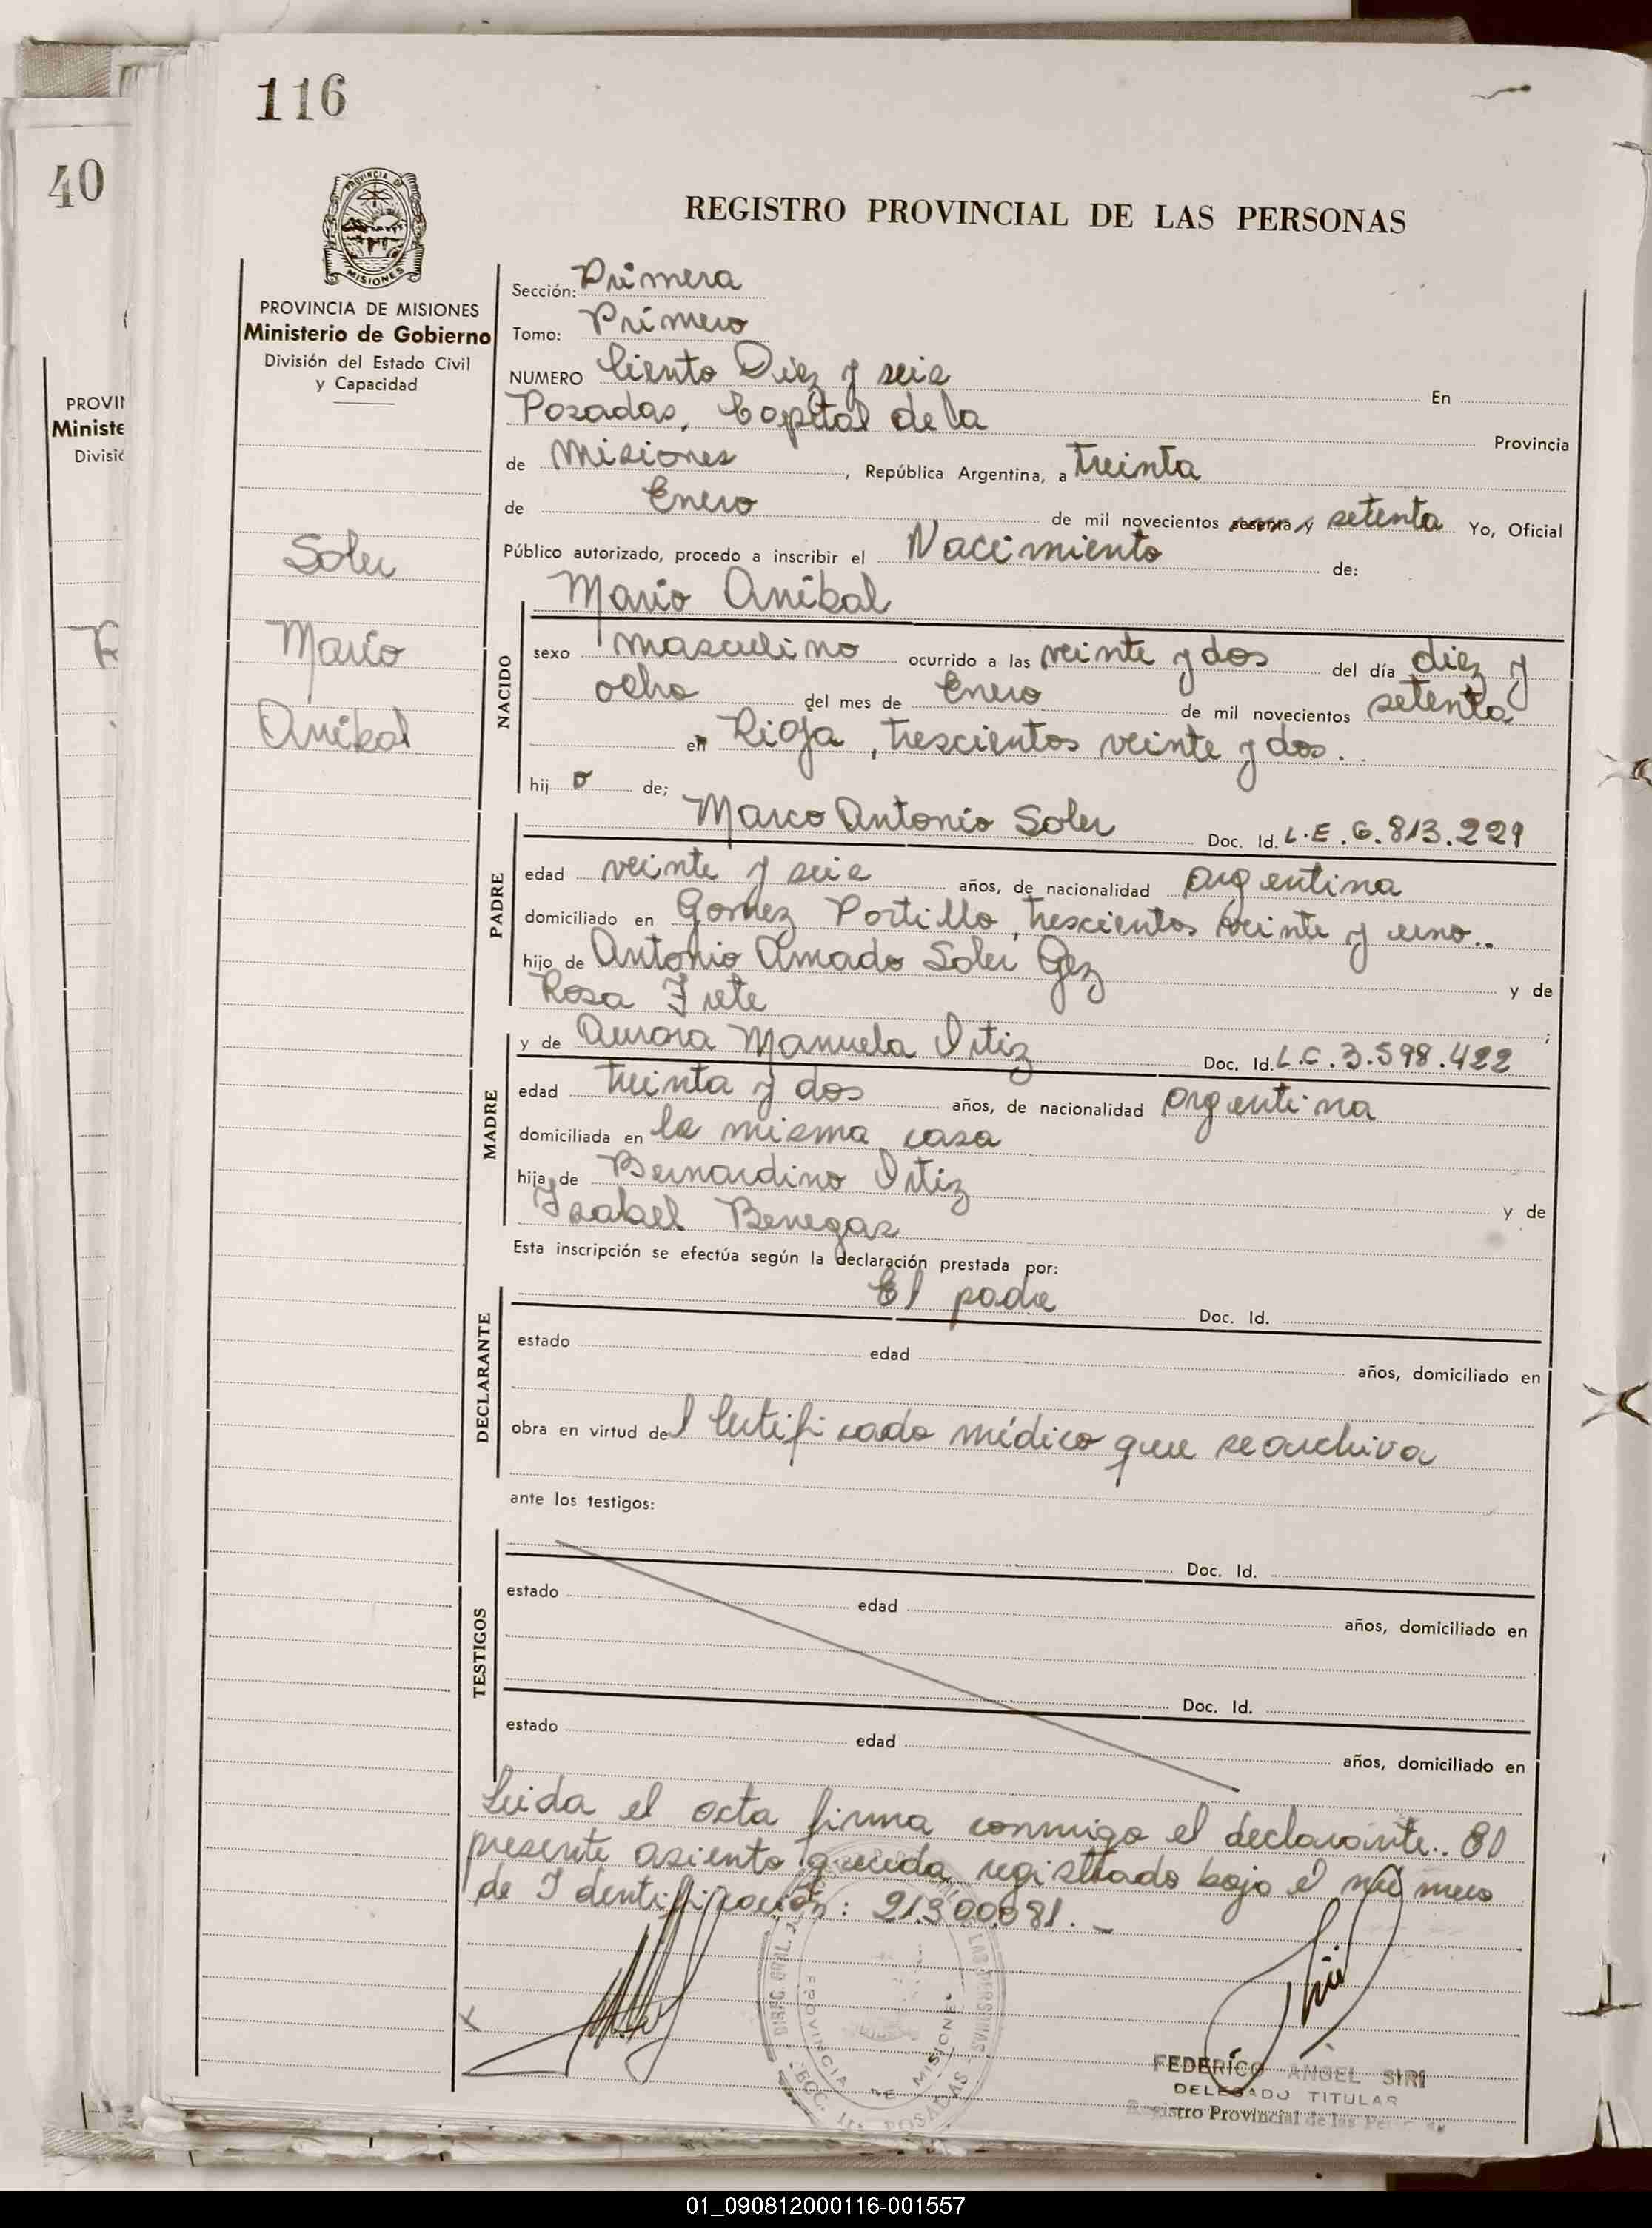 116
40
REGISTRO PROVINCIAL DE LAS PERSONAS
PROVINCIA DE MISIONES
Ministerio de Gobierno
División del Estado Civil
y Capacidad
PROVIN
Ministe
Divisió
Soler
Mario
Anibal
Sección: Primera
Tomo: Primero
NUMERO Ciento Diez y seis En
Posadas, Capital de la Provincia
de Misiones, República Argentina, a treinta
de Enero de mil novecientos sesenta y setenta Yo, Oficial
Público autorizado, procedo a inscribir el Nacimiento de:
Mario Anibal
NACIDO
sexo masculino ocurrido a las veinte y dos del día diez y
ocho del mes de Enero de mil novecientos setenta
en Rioja, trescientos veinte y dos.
hij o de;
Marco Antonio Soler Doc. Id. L.E. 6.813.229
PADRE
edad veinte y seis años, de nacionalidad argentina
domiciliado en Gomez Portillo, trescientos veinte y uno..
hijo de Antonio Amado Soler Gez y de
Rosa Frete ;
y de Aurora Manuela Ortiz Doc. Id. L.C. 3.598.422
MADRE
edad treinta y dos años, de nacionalidad argentina
domiciliada en la misma casa
hija de Bernardino Ortiz y de
Isabel Benegas
Esta inscripción se efectúa según la declaración prestada por:
El padre Doc. Id.
DECLARANTE
estado edad años, domiciliado en
obra en virtud del Certificado médico que se archiva
ante los testigos:
Doc. Id.
TESTIGOS
estado edad años, domiciliado en
Doc. Id.
estado edad años, domiciliado en
Leida el acta firma conmigo el declarante.. El
presente asiento queda registrado bajo el número
de Identificación: 21.300.081.-
FEDERICO ANGEL SIRI
DELEGADO TITULAR
Registro Provincial de las
PROVINCIA DE MISIONES
POSADAS
01_090812000116-001557